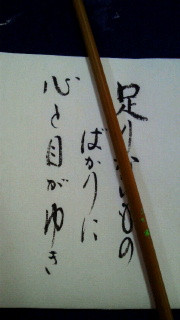 足りないもの
ばかりに
心と目がゆき